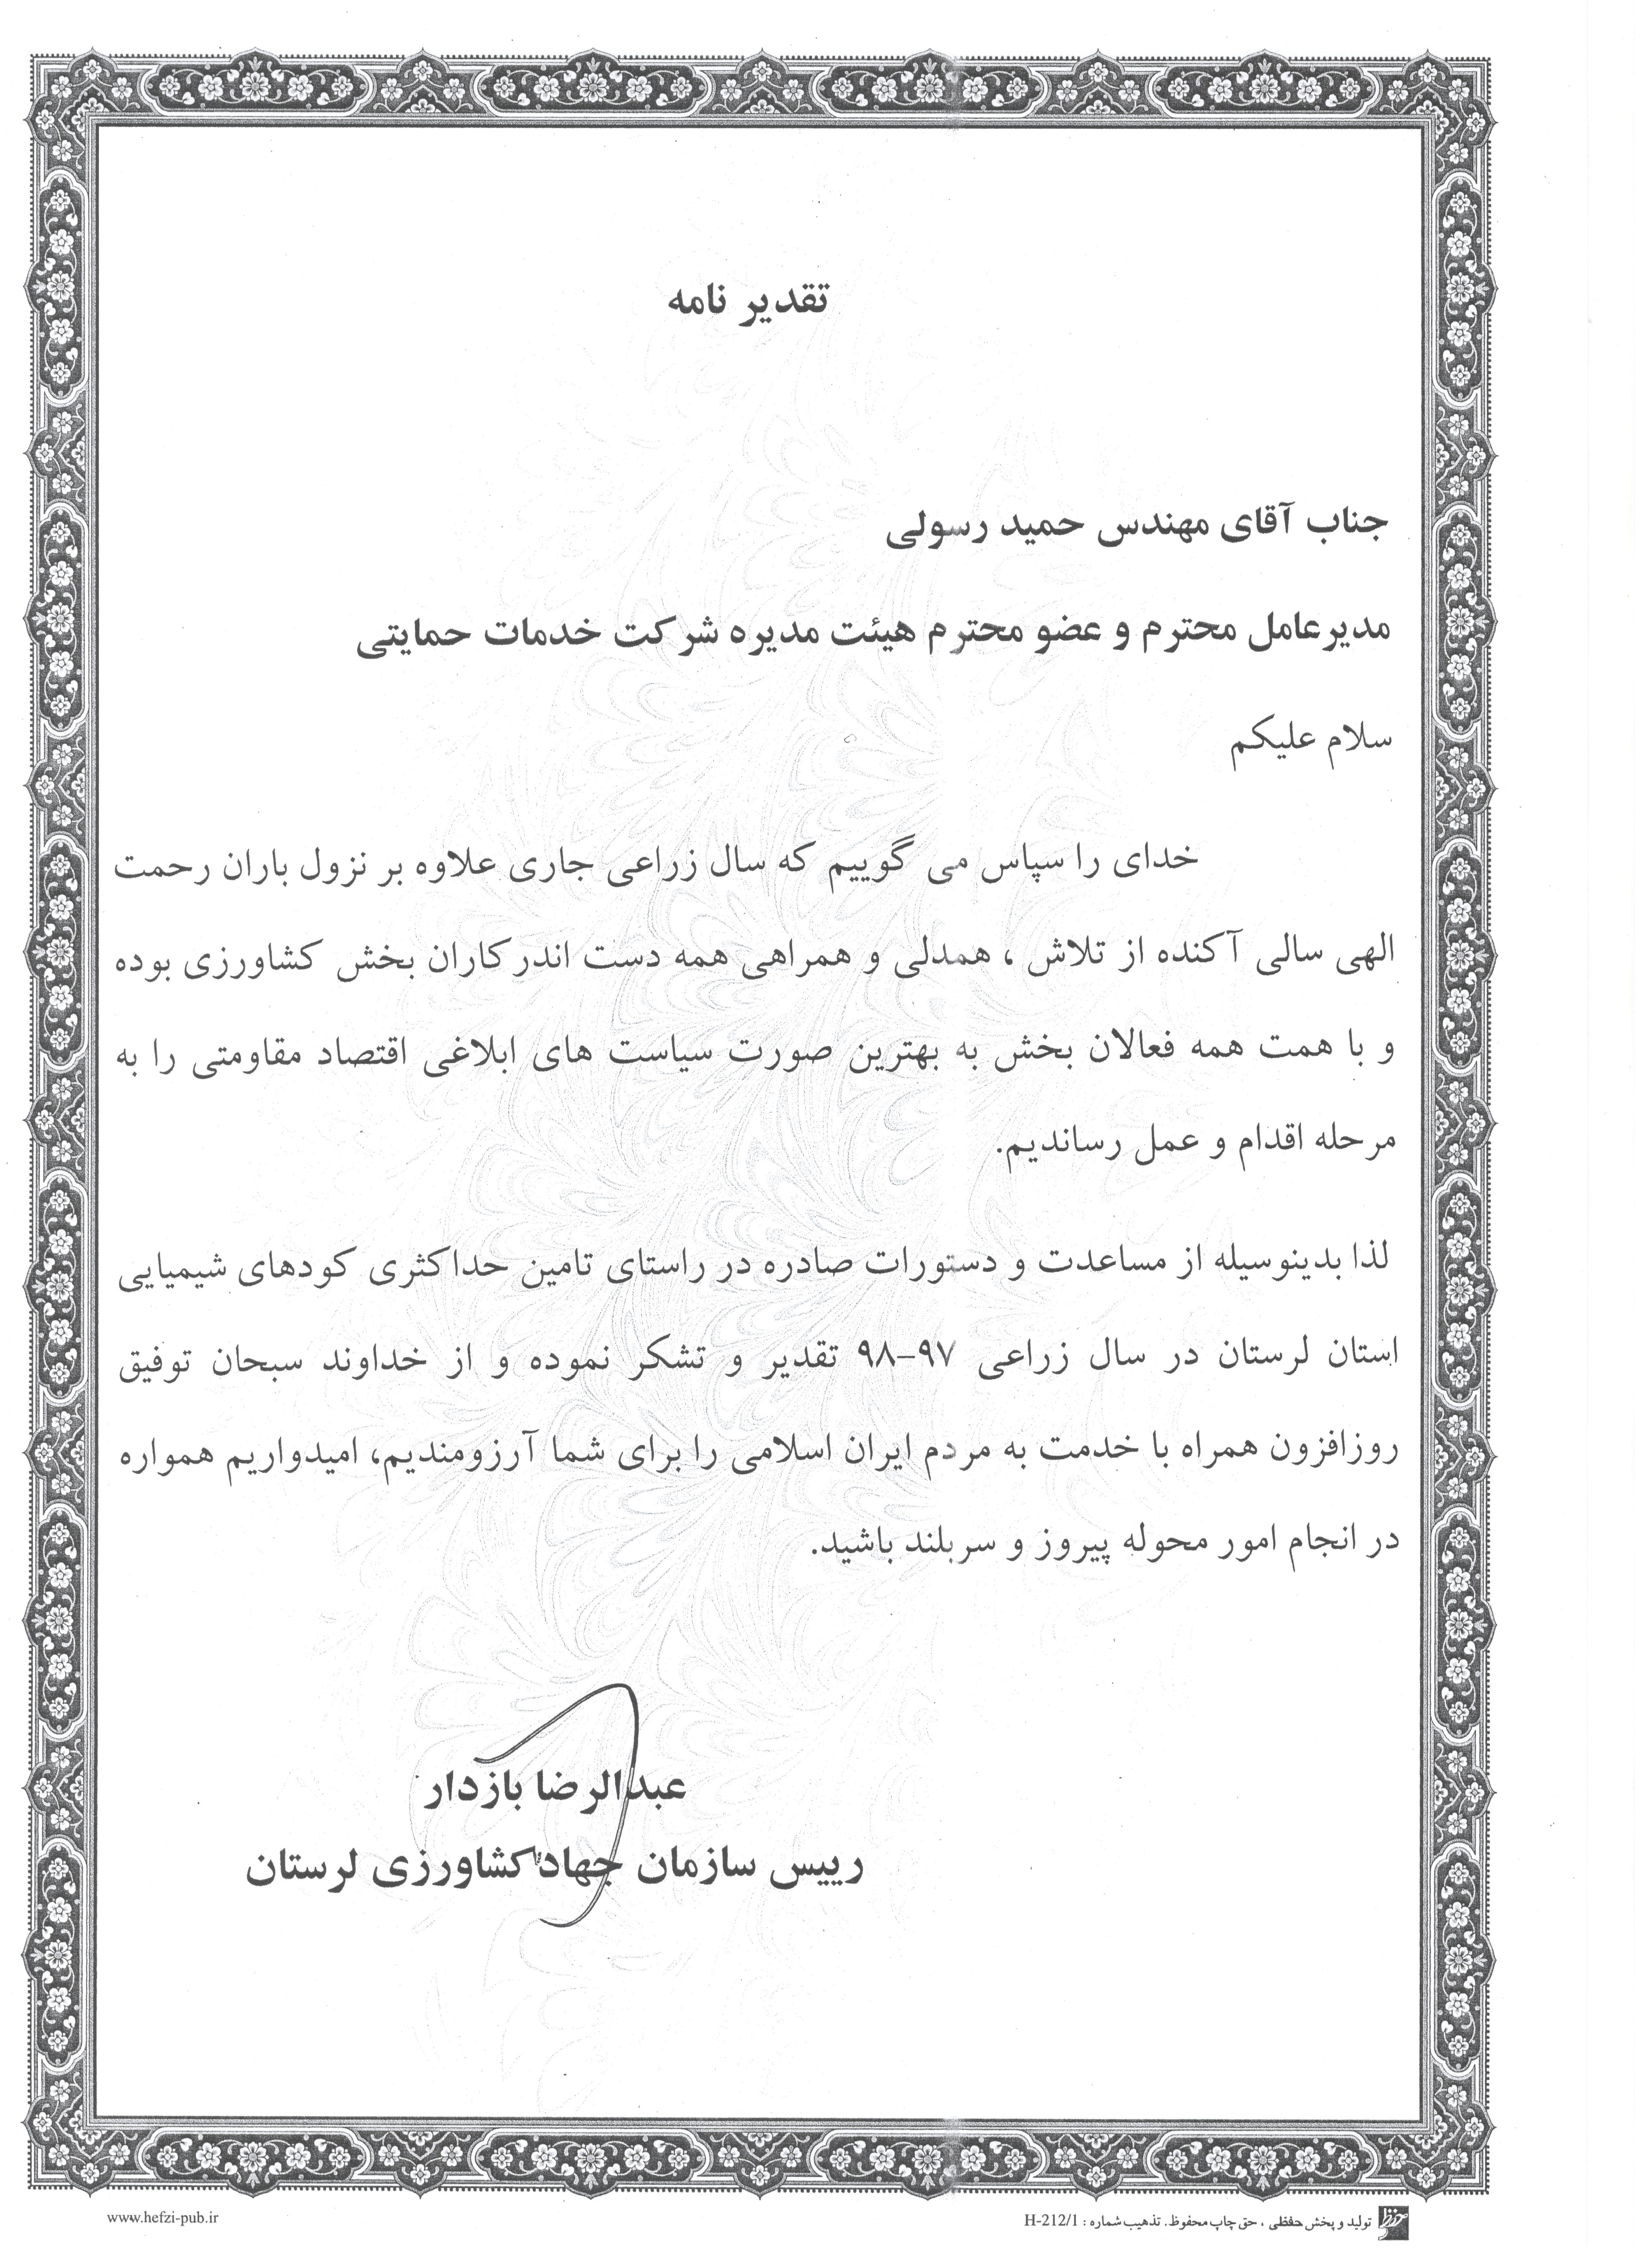 تقدیر نامه
جناب آقای مهندس حمید رسولی
مدیرعامل محترم و عضو محترم هیئت مدیره شرکت خدمات حمایتی
سلام علیکم
خدای را سپاس می گوییم که سال زراعی جاری علاوه بر نزول باران رحمت
الهی سالی آکنده از تلاش ، همدلی و همراهی همه دست اندرکاران بخش کشاورزی بوده
و با همت همه فعالان بخش به بهترین صورت سیاست های ابلاغی اقتصاد مقاومتی را به
مرحله اقدام و عمل رساندیم.
لذا بدینوسیله از مساعدت و دستورات صادره در راستای تامین حداکثری کودهای شیمیایی
استان لرستان در سال زراعی ۹۷-۹۸ تقدیر و تشکر نموده و از خداوند سبحان توفیق
روزافزون همراه با خدمت به مردم ایران اسلامی را برای شما آرزومندیم، امیدواریم همواره
در انجام امور محوله پیروز و سربلند باشید.
عبدالرضا بازدار
رییس سازمان جهاد کشاورزی لرستان
حفظی تولید و پخش حفظی ، حق چاپ محفوظ. تذهیب شماره : H-212/1
www.hefzi-pub.ir